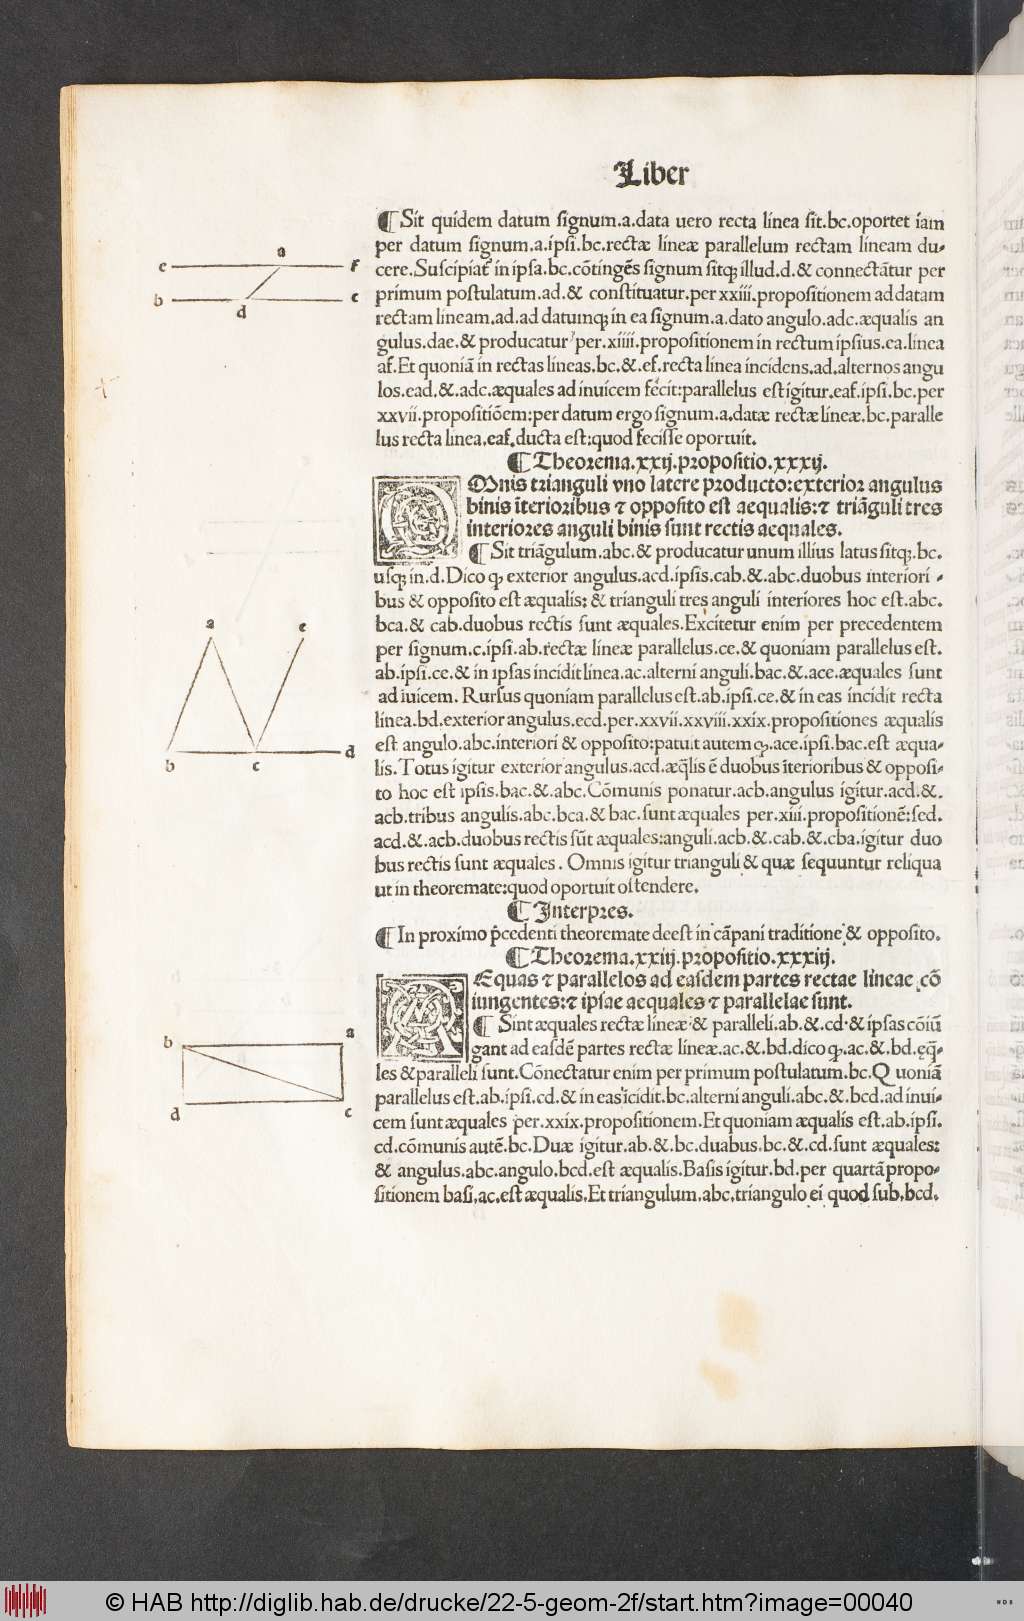 Liber
¶ Sit quidem datum signum.a.data uero recta linea sit.bc.oportet iam
per datum signum.a.ipsi.bc.rectæ lineæ parallelum rectam lineam du-
cere.Suscipiat in ipsa.bc.cōtingēs signum sitqꝫ illud.d.& connectātur per
primum postulatum.ad.& constituatur.per xxiii.propositionem ad datam
rectam lineam.ad.ad datumqꝫ in ea signum.a.dato angulo.adc.æqualis an
gulus.dae.& producatur per.xiiii.propositionem in rectum ipsius.ea.linea
af.Et quoniā in rectas lineas.bc.&.ef.recta linea incidens.ad.alternos angu
los.ead.&.adc.æquales ad inuicem fecit:parallelus est igitur.eaf.ipsi.bc.per
xxvii.propositiōem:per datum ergo signum.a.datæ rectæ lineæ.bc.paralle
lus recta linea.eaf.ducta est:quod fecisse oportuit.
¶ Theorema.xxij.propositio.xxxij.
OMnis trianguli vno latere producto:exterior angulus
binis īterioribus ⁊ opposito est aequalis:⁊ triāguli tres
interiores anguli binis sunt rectis aequales.
¶ Sit triāgulum.abc.& producatur unum illius latus sitqꝫ.bc.
usqꝫ in.d.Dico ꝙ exterior angulus.acd.ipsis.cab.&.abc.duobus interiori-
bus & opposito est æqualis: & trianguli tres anguli interiores hoc est.abc.
bca.& cab.duobus rectis sunt æquales.Excitetur enim per precedentem
per signum.c.ipsi.ab.rectæ lineæ parallelus.ce.& quoniam parallelus est.
ab.ipsi.ce.& in ipsas incidit linea.ac.alterni anguli.bac.&.ace.æquales sunt
ad iuicem. Rursus quoniam parallelus est.ab.ipsi.ce.& in eas incidit recta
linea.bd.exterior angulus.ecd.per.xxvii.xxviii.xxix.propositiones æqualis
est angulo.abc.interiori & opposito:patuit autem ꝙ.ace.ipsi.bac.est æqua-
lis.Totus igitur exterior angulus.acd.æq̄lis ē duobus īterioribus & opposi-
to hoc est ipsis.bac.&.abc.Cōmunis ponatur.acb.angulus igitur.acd.&.
acb.tribus angulis.abc.bca.& bac.sunt æquales per.xiii.propositionē:sed.
acd.& acb.duobus rectis sūt æquales:anguli.acb.&.cab.&.cba.igitur duo
bus rectis sunt æquales. Omnis igitur trianguli & quæ sequuntur reliqua
ut in theoremate:quod oportuit ostendere.
¶ Interpres.
¶ In proximo p̄cedenti theoremate deest in cāpani traditione & opposito.
¶ Theorema.xxiij.propositio.xxxiij.
AEquas ⁊ parallelos ad easdem partes rectae lineae cō
iungentes:⁊ ipsae aequales ⁊ parallelae sunt.
¶ Sint æquales rectæ lineæ & paralleli.ab.& cd.& ipsas cōiū
gant ad easdē partes rectæ lineæ.ac.& bd.dico ꝙ.ac.&.bd.eq̄-
les & paralleli sunt.Cōnectatur enim per primum postulatum.bc.Quoniā
parallelus est.ab.ipsi.cd.& in eas īcidit.bc.alterni anguli.abc.& bcd.ad inui-
cem sunt æquales per.xxix.propositionem.Et quoniam æqualis est.ab.ipsi.
cd.cōmunis autē.bc.Duæ igitur.ab.& bc.duabus.bc.& cd.sunt æquales:
& angulus.abc.angulo.bcd.est æqualis.Basis igitur.bd.per quartā propo-
sitionem basi.ac.est æqualis.Et triangulum.abc.triangulo ei quod sub.bcd.
e a f
b d c
a e
b c d
b a
d c
© HAB http://diglib.hab.de/drucke/22-5-geom-2f/start.htm?image=00040